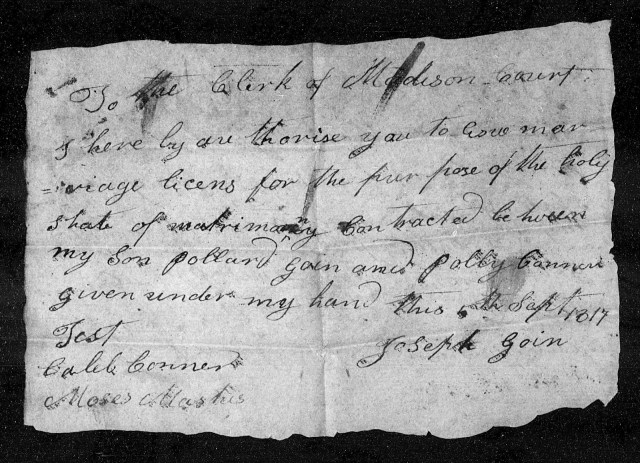 To the Clerk of Madison Court
I here by au thorise you to mar
riage licens for the pur pose of the holy
state of matrimony Contracted between
my Son Pollard goin and Polly Conner
given under my hand this th Sept 1817
Test Joseph Goin
Caleb Conner
Moses